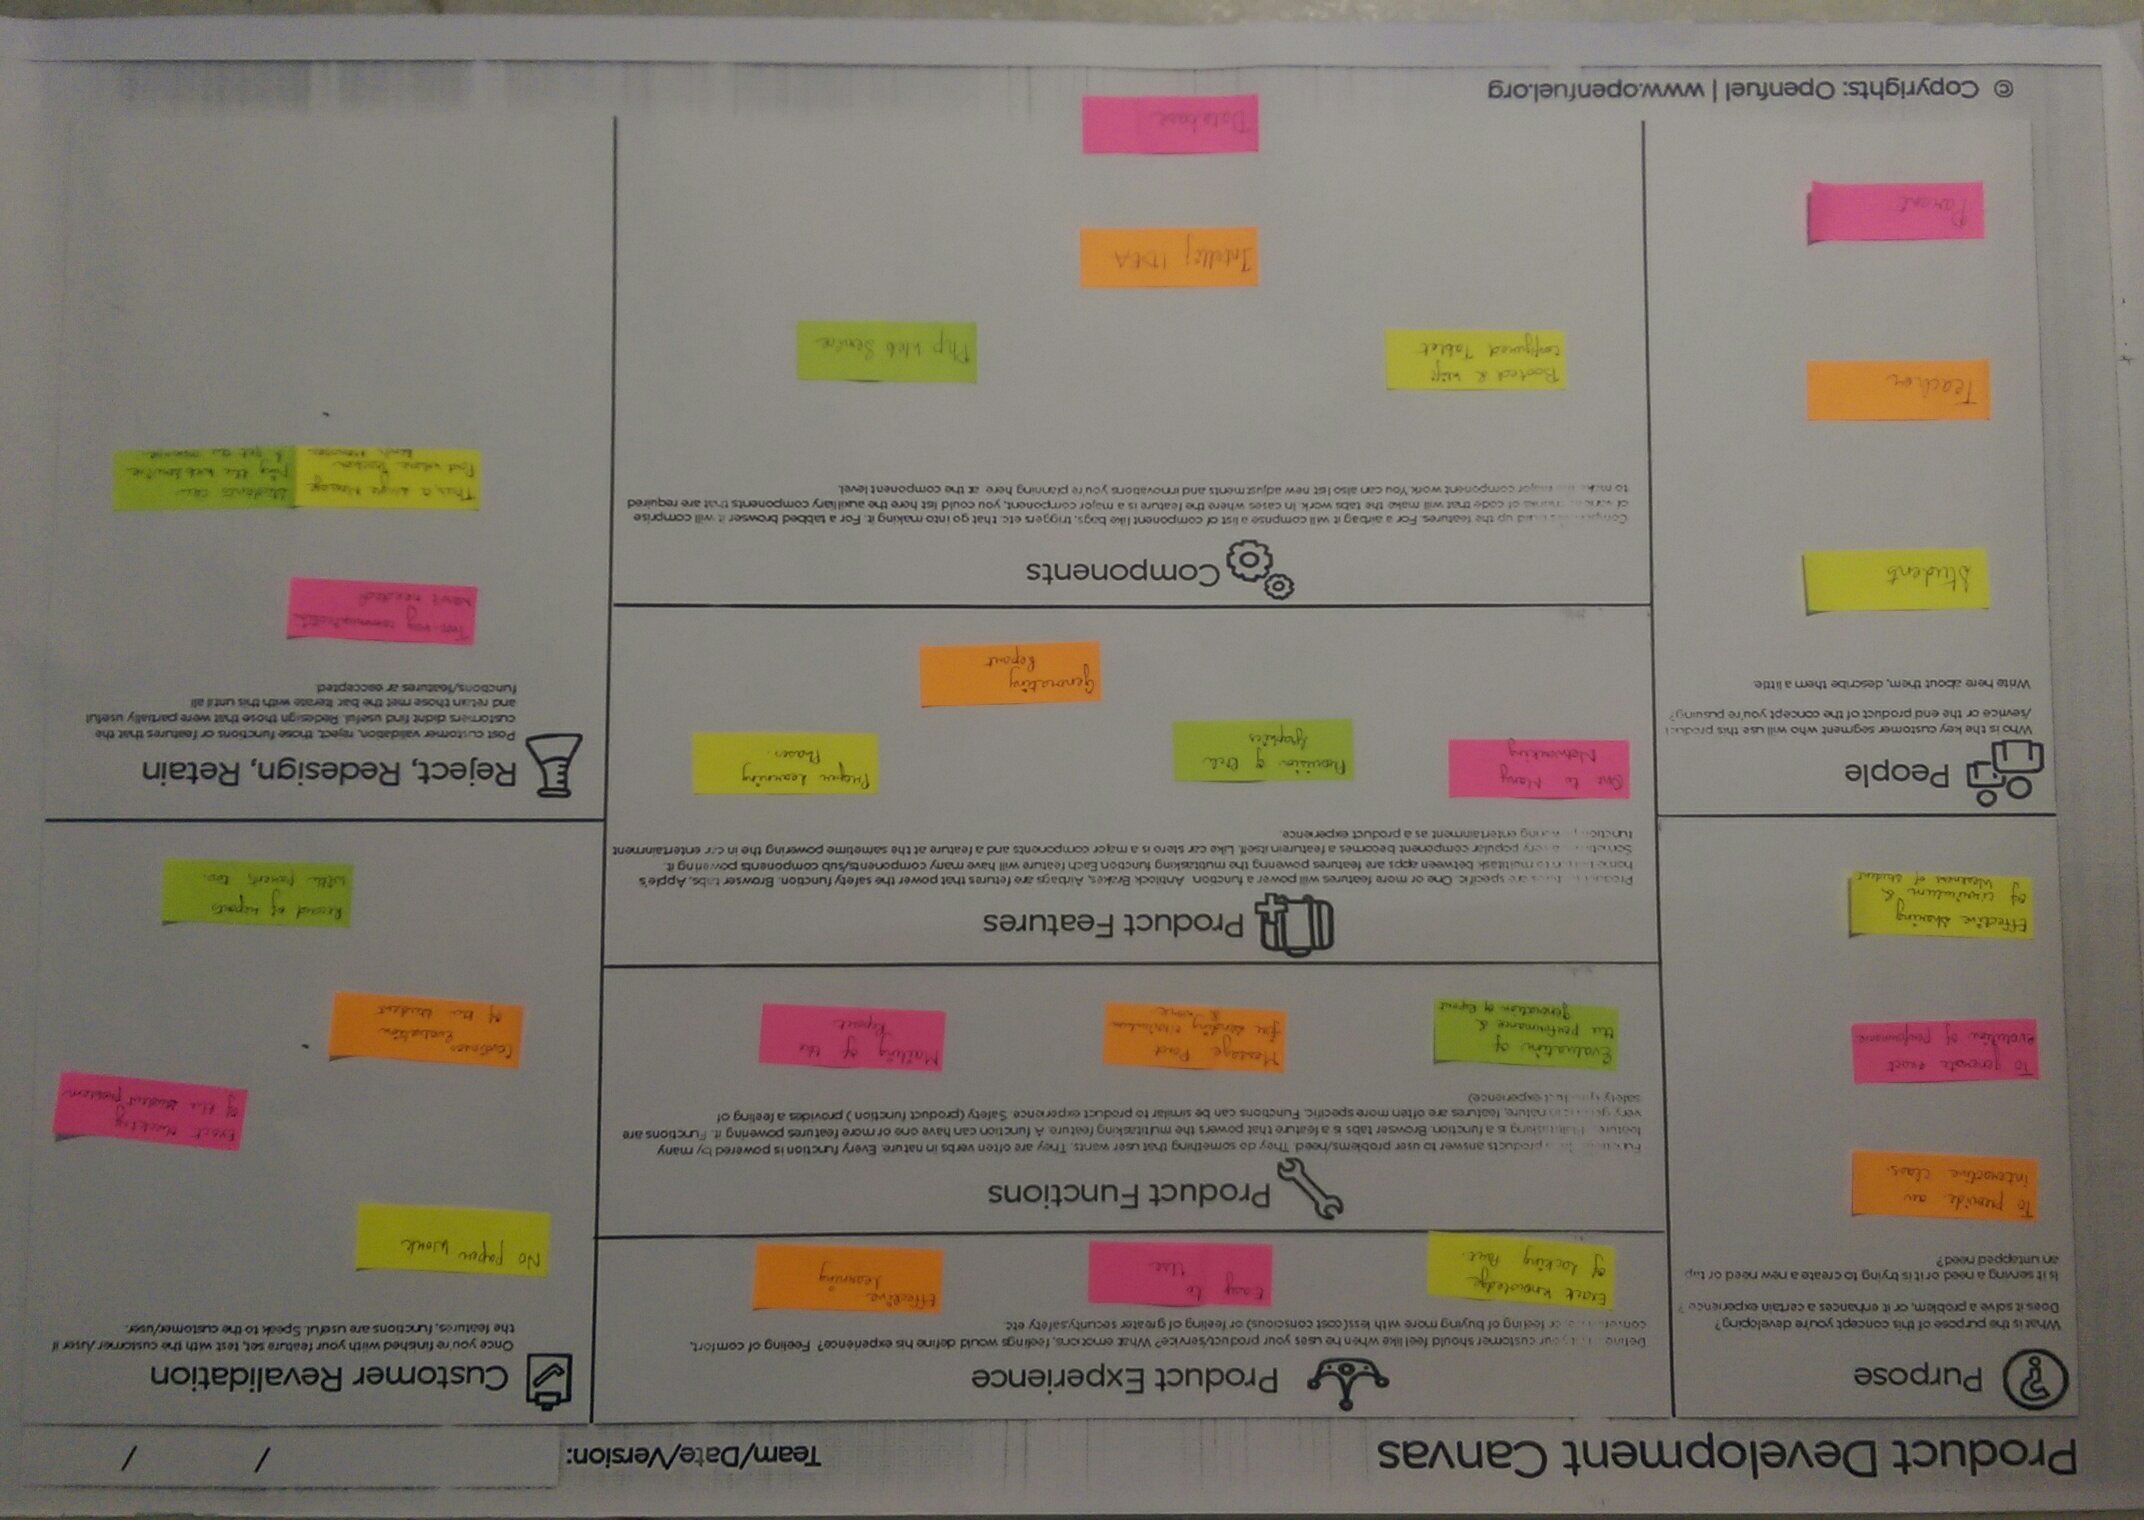 Product Development Canvas
Team/Date/Version: / /
Purpose
What is the purpose of this concept you're developing?
Does it solve a problem, or it enhances a certain experience ?
Is it serving a need or it is trying to create a new need or tap
an untapped need?
To provide an
interactive class.
To generate exact
evolution of performance
Effective sharing
of curriculum &
Weakness of student
People
Who is the key customer segment who will use this product
/sevrice or the end product of the concept you're pusuing?
Write here about them, describe them a little
Students
Teacher
Parent
Product Experience
your customer should feel like when he uses your product/service? What emotions, feelings would define his experience? Feeling of comfort,
feeling of buying more with less(cost conscious) or feeling of greater security,safety etc
Exact knowledge
of lacking Part.
Easy to
Use
Effective
Learning
Product Functions
products answer to user problems/need. They do something that user wants. They are often verbs in nature. Every function is powered by many
is a function. Browser tabs is a feature that powers the multitasking feature. A function can have one or more features powering it. Functions are
very nature, features are often more specific. Functions can be similar to product experience. Safety (product function ) provides a feeling of
safety experience)
Evaluation of
the performance &
generation of Report
Message Pad
for sending curriculum
& more
Mailing of the
Report
Product Features
are specific. One or more features will power a function. Antilock Brakes, Airbags are fetures that power the safety function. Browser tabs, Apple's
to multitask between apps are features powering the multitasking function Each feature will have many components/sub components powering it.
very popular component becomes a featurein itself. Like car stero is a major components and a feature at the sametime powering the in car entertainment
entertainment as a product experience.
One to Many
Networking
Provision of Den
graphics
Prequin Learning
Phases.
Generating
Report
Components
build up the features. For a airbag it will comprise a list of component like bags, triggers etc that go into making it. For a tabbed browser it will comprise
of code that will make the tabs work. In cases where the feature is a major component, you could list here the auxiliary components that are required
to major component work. You can also list new adjustments and innovations you're planning here at the component level.
Booted & wifi
configured Tablet
Php Web Service
Intellij IDEA
Database
Customer Revalidation
Once you're finished with your feature set, test with the customer /user if
the features, functions are useful. Speak to the customer/user.
No paper work
Exact tracking
of the student problem
Continues
Evaluation
of the student
Record of reports
with parents too.
Reject, Redesign, Retain
Post customer validation, reject, those functions or features that the
customers didnt find useful. Redesign those that were partially useful
and retain those met the bar. Iterate with this until all
functions/features ar eaccepted
Two-way communication
wasn't needed!
Thus, a single Message
Pad where teacher
students can
ping the web service
© Copyrights: Openfuel | www.openfuel.org